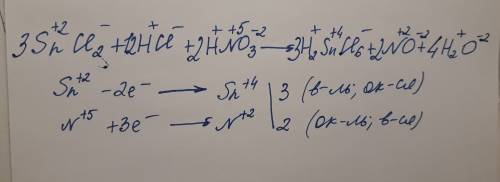 3Sn⁺²Cl₂⁻ + 12H⁺Cl⁻ + 2H⁺N⁺⁵O₃⁻² → 3H₂⁺Sn⁺⁴Cl₆⁻ + 2N⁺²O⁻² + 4H₂⁺O⁻²
Sn⁺² - 2e⁻ → Sn⁺⁴ | 3 (в-ль; ок-се)
N⁺⁵ + 3e⁻ → N⁺² | 2 (ок-ль; в-се)